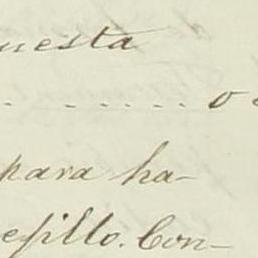 uesta
. . . . . . . o
para ha-
epillo. Con-